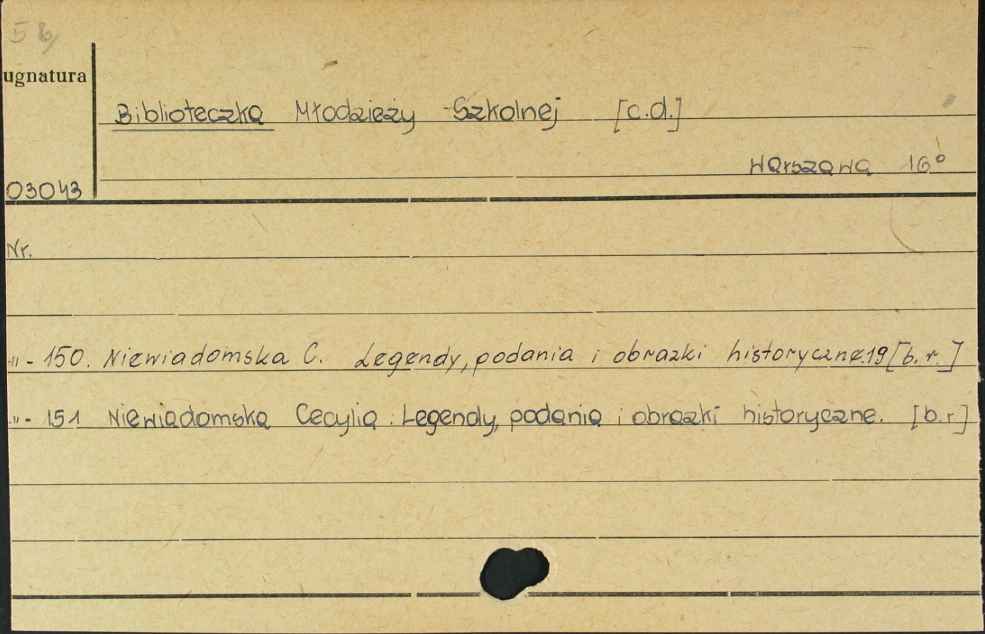 5 b/
ugnatura
Biblioteczka Młodzieży Szkolnej [c.d.]
Warszawa 16°
03043
Nr.
-"- 150. Niewiadomska C. Legendy, podania i obrazki historyczne.19[b.r.]
-"- 151 Niewiadomska Cecylia. Legendy, podania i obrazki historyczne. [b.r]